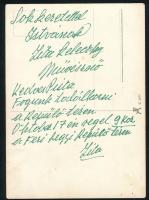 Sok szeretettel
Istvánnak
Zita Szeleczky
Művésznő
Kedves Zita
Fogunk todálkozni
a Repülő téren
Október 17 én reggel 9 kor
a Feri hegyi Repülő téren
Zita